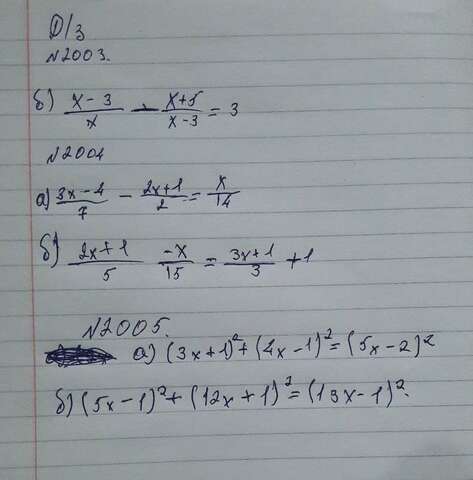 D/з
N2003.
б) (x-3)/x - (x+5)/(x-3) = 3
N2004
а) (3x-4)/7 - (2x+1)/2 = x/14
б) (2x+1)/5 -x/15 = (3x+1)/3 + 1
N2005.
а) (3x+1)²+(4x-1)²=(5x-2)²
б) (5x-1)²+(12x+1)²=(13x-1)².